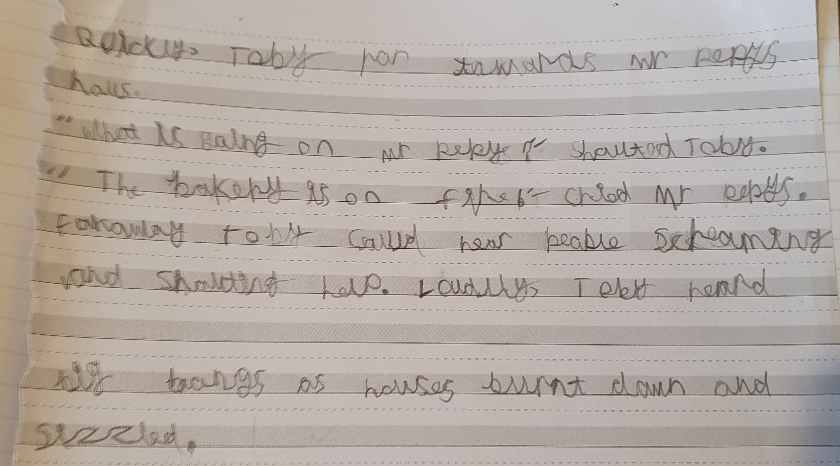 Quickly, Toby ran tawards mr pepys
haus.
"what is going on mr pepys?" shouted Toby.
"The bakery is on fire!" cried Mr pepys.
Faraway toby could hear peaple screaming
and shouting help. Loudly, Toby heard
big bangs as houses burnt down and
sizzled.